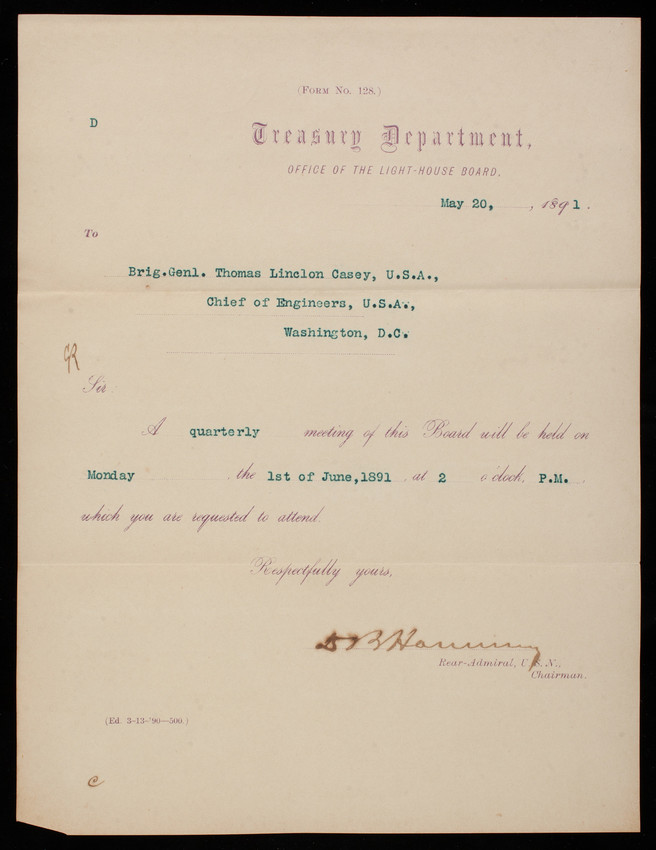 (FORM NO. 128.)
D
Treasury Department,
OFFICE OF THE LIGHT-HOUSE BOARD.
May 20, , 1891.
To
Brig.Genl. Thomas Linclon Casey, U.S.A.,
Chief of Engineers, U.S.A.,
Washington, D.C.
Sir:
A quarterly meeting of this Board will be held on
Monday , the 1st of June,1891 , at 2 o'clock, P.M. ,
which you are requested to attend.
Respectfully yours,
Rear-Admiral, U.S.N.,
Chairman.
(Ed. 3-13-'90—500.)
C